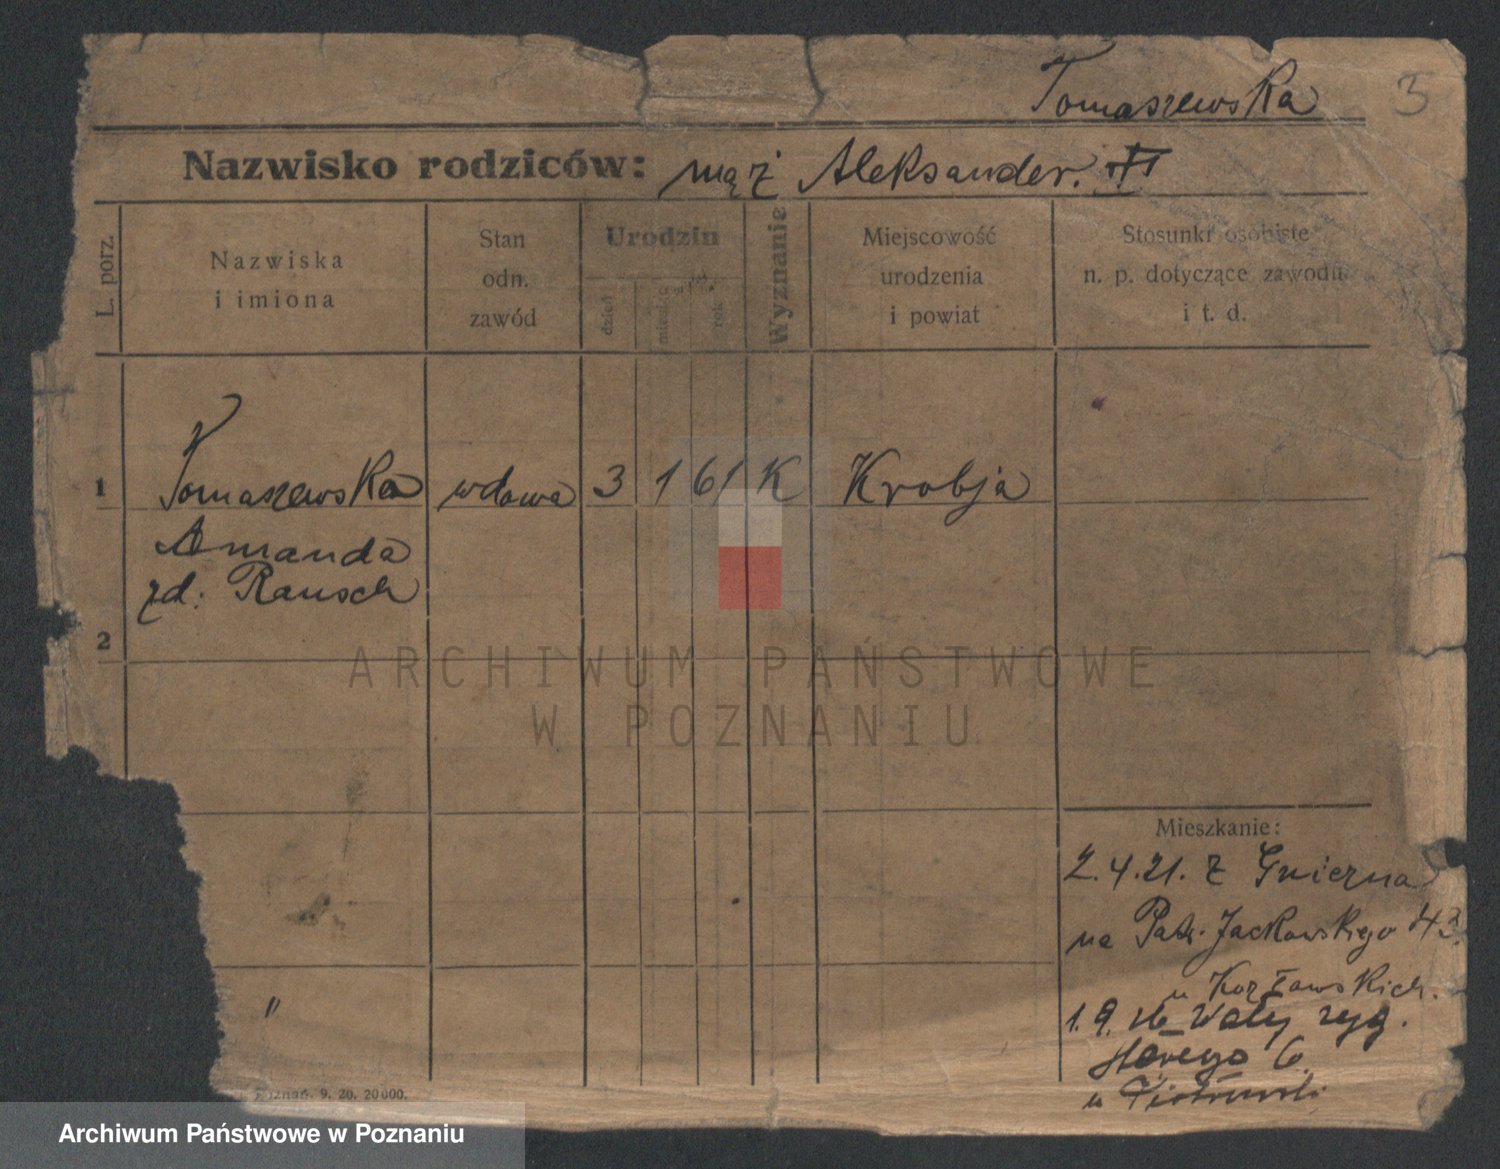 Tomaszewska
3
Nazwisko rodziców: mąż Aleksander. †
L. porz.
Nazwiska
i imiona
Stan
odn.
zawód
Urodzin
dzień
miesiąc
rok
Wyznanie
Miejscowość
urodzenia
i powiat
Stosunki osobiste
n. p. dotyczące zawodu
i t. d.
1
Tomaszewska wdowa 3 1 61 K Krobja
Amanda
zd: Rausch
2
ARCHIWUM PAŃSTWOWE
W POZNANIU
Mieszkanie:
2.4.21. z Gniezna
na Patr. Jackowskiego 43
u
1.9. Wały zyg.
Starego 6
u
"
Poznań. 9. 20. 20000.
Archiwum Państwowe w Poznaniu